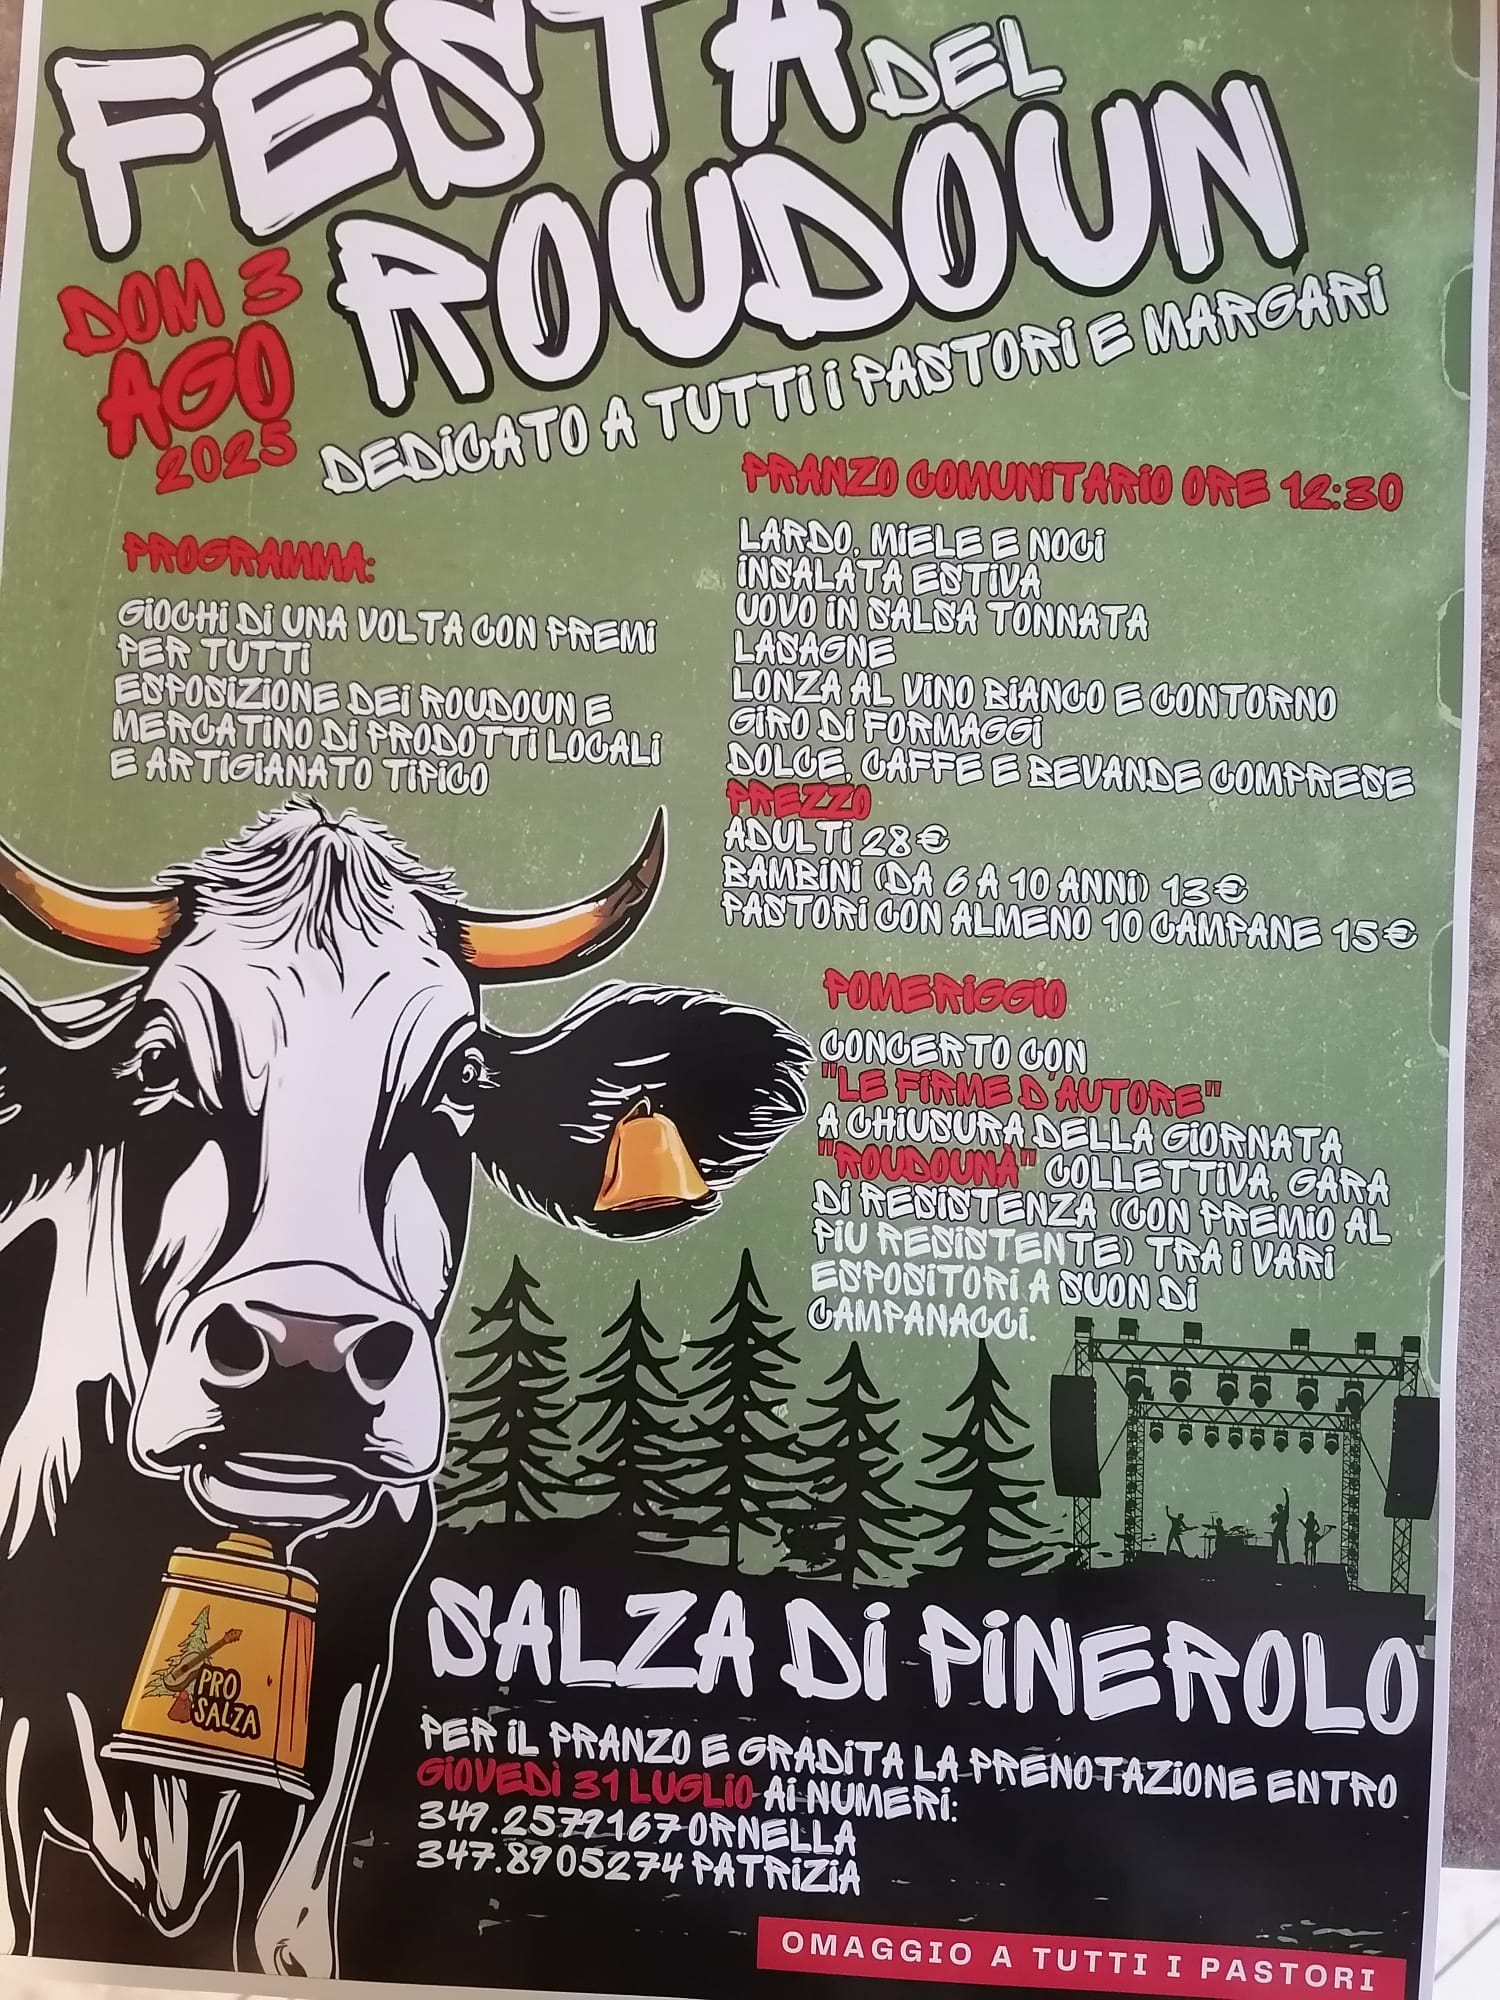 FESTA DEL
ROUDOUN
DOM 3
AGO
2025
DEDICATO A TUTTI I PASTORI E MARGARI
PROGRAMMA:
GIOCHI DI UNA VOLTA CON PREMI
PER TUTTI
ESPOSIZIONE DEI ROUDOUN E
MERCATINO DI PRODOTTI LOCALI
E ARTIGIANATO TIPICO
PRANZO COMUNITARIO ORE 12:30
LARDO, MIELE E NOCI
INSALATA ESTIVA
UOVO IN SALSA TONNATA
LASAGNE
LONZA AL VINO BIANCO E CONTORNO
GIRO DI FORMAGGI
DOLCE, CAFFE E BEVANDE COMPRESE
PREZZO
ADULTI 28€
BAMBINI (DA 6 A 10 ANNI) 13€
PASTORI CON ALMENO 10 CAMPANE 15€
POMERIGGIO
CONCERTO CON
"LE FIRME D'AUTORE"
A CHIUSURA DELLA GIORNATA
"ROUDOUNÀ" COLLETTIVA, GARA
DI RESISTENZA (CON PREMIO AL
PIU RESISTENTE) TRA I VARI
ESPOSITORI A SUON DI
CAMPANACCI.
PRO
SALZA
SALZA DI PINEROLO
PER IL PRANZO E GRADITA LA PRENOTAZIONE ENTRO
GIOVEDÌ 31 LUGLIO AI NUMERI:
349.2579167 ORNELLA
347.8905274 PATRIZIA
OMAGGIO A TUTTI I PASTORI